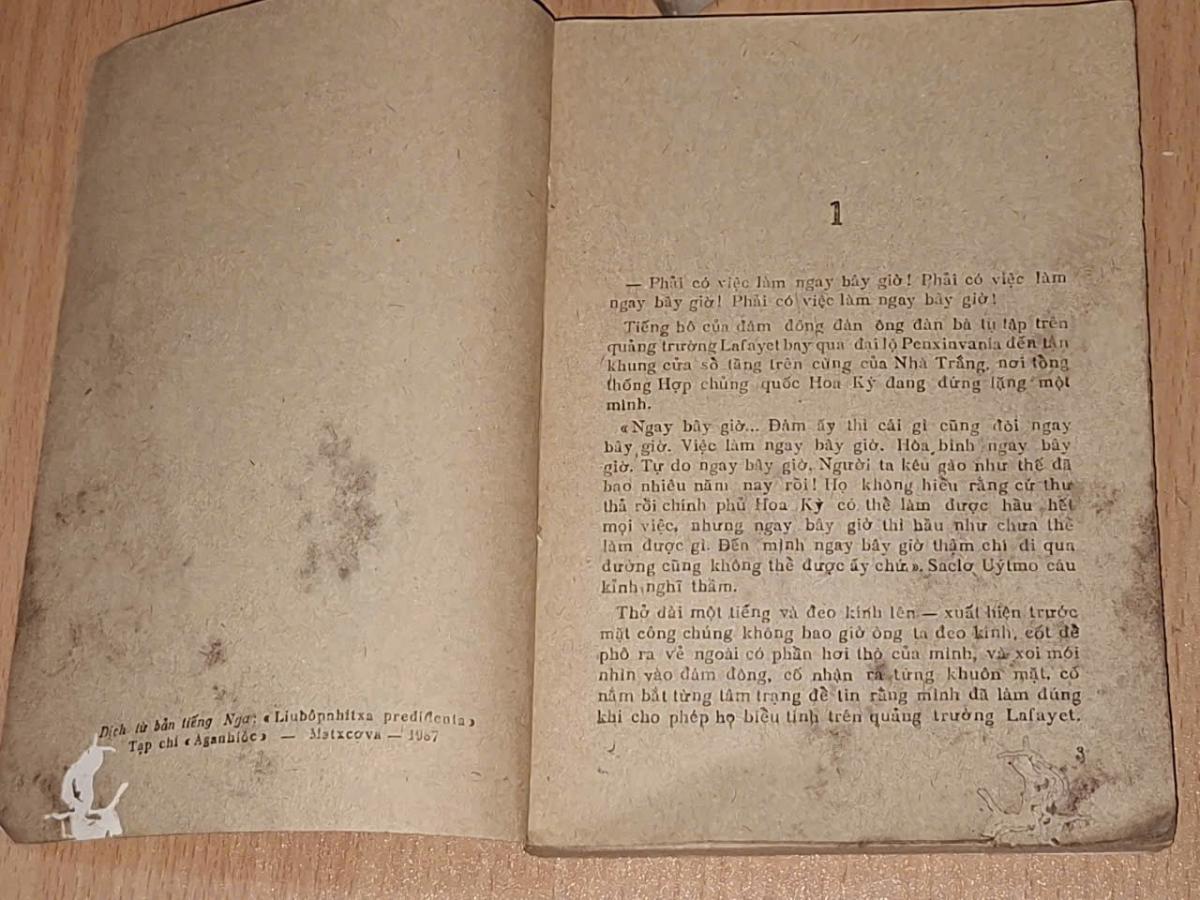 Dịch từ bản tiếng Nga: «Liubôpnhitxa prediđenta»
Tạp chí «Aganhiôc» — Matxcơva — 1987
1
— Phải có việc làm ngay bây giờ! Phải có việc làm
ngay bây giờ! Phải có việc làm ngay bây giờ!
Tiếng hô của đám đông đàn ông đàn bà tụ tập trên
quảng trường Lafayet bay qua đại lộ Penxinvania đến tận
khung cửa sổ tầng trên cùng của Nhà Trắng, nơi tổng
thống Hợp chủng quốc Hoa Kỳ đang đứng lặng một
mình.
«Ngay bây giờ... Đám ấy thì cái gì cũng đòi ngay
bây giờ. Việc làm ngay bây giờ. Hòa bình ngay bây
giờ. Tự do ngay bây giờ. Người ta kêu gào như thế đã
bao nhiêu năm nay rồi! Họ không hiểu rằng cứ thư
thả rồi chính phủ Hoa Kỳ có thể làm được hầu hết
mọi việc, nhưng ngay bây giờ thì hầu như chưa thể
làm được gì. Đến mình ngay bây giờ thậm chí đi qua
đường cũng không thể được ấy chứ». Saclơ Uýtmo cáu
kỉnh nghĩ thầm.
Thở dài một tiếng và đeo kính lên — xuất hiện trước
mặt công chúng không bao giờ ông ta đeo kính, cốt để
phô ra vẻ ngoài có phần hơi thô của mình, và xoi mói
nhìn vào đám đông, cố nhận ra từng khuôn mặt, cố
nắm bắt từng tâm trạng để tin rằng mình đã làm đúng
khi cho phép họ biểu tình trên quảng trường Lafayet.
3